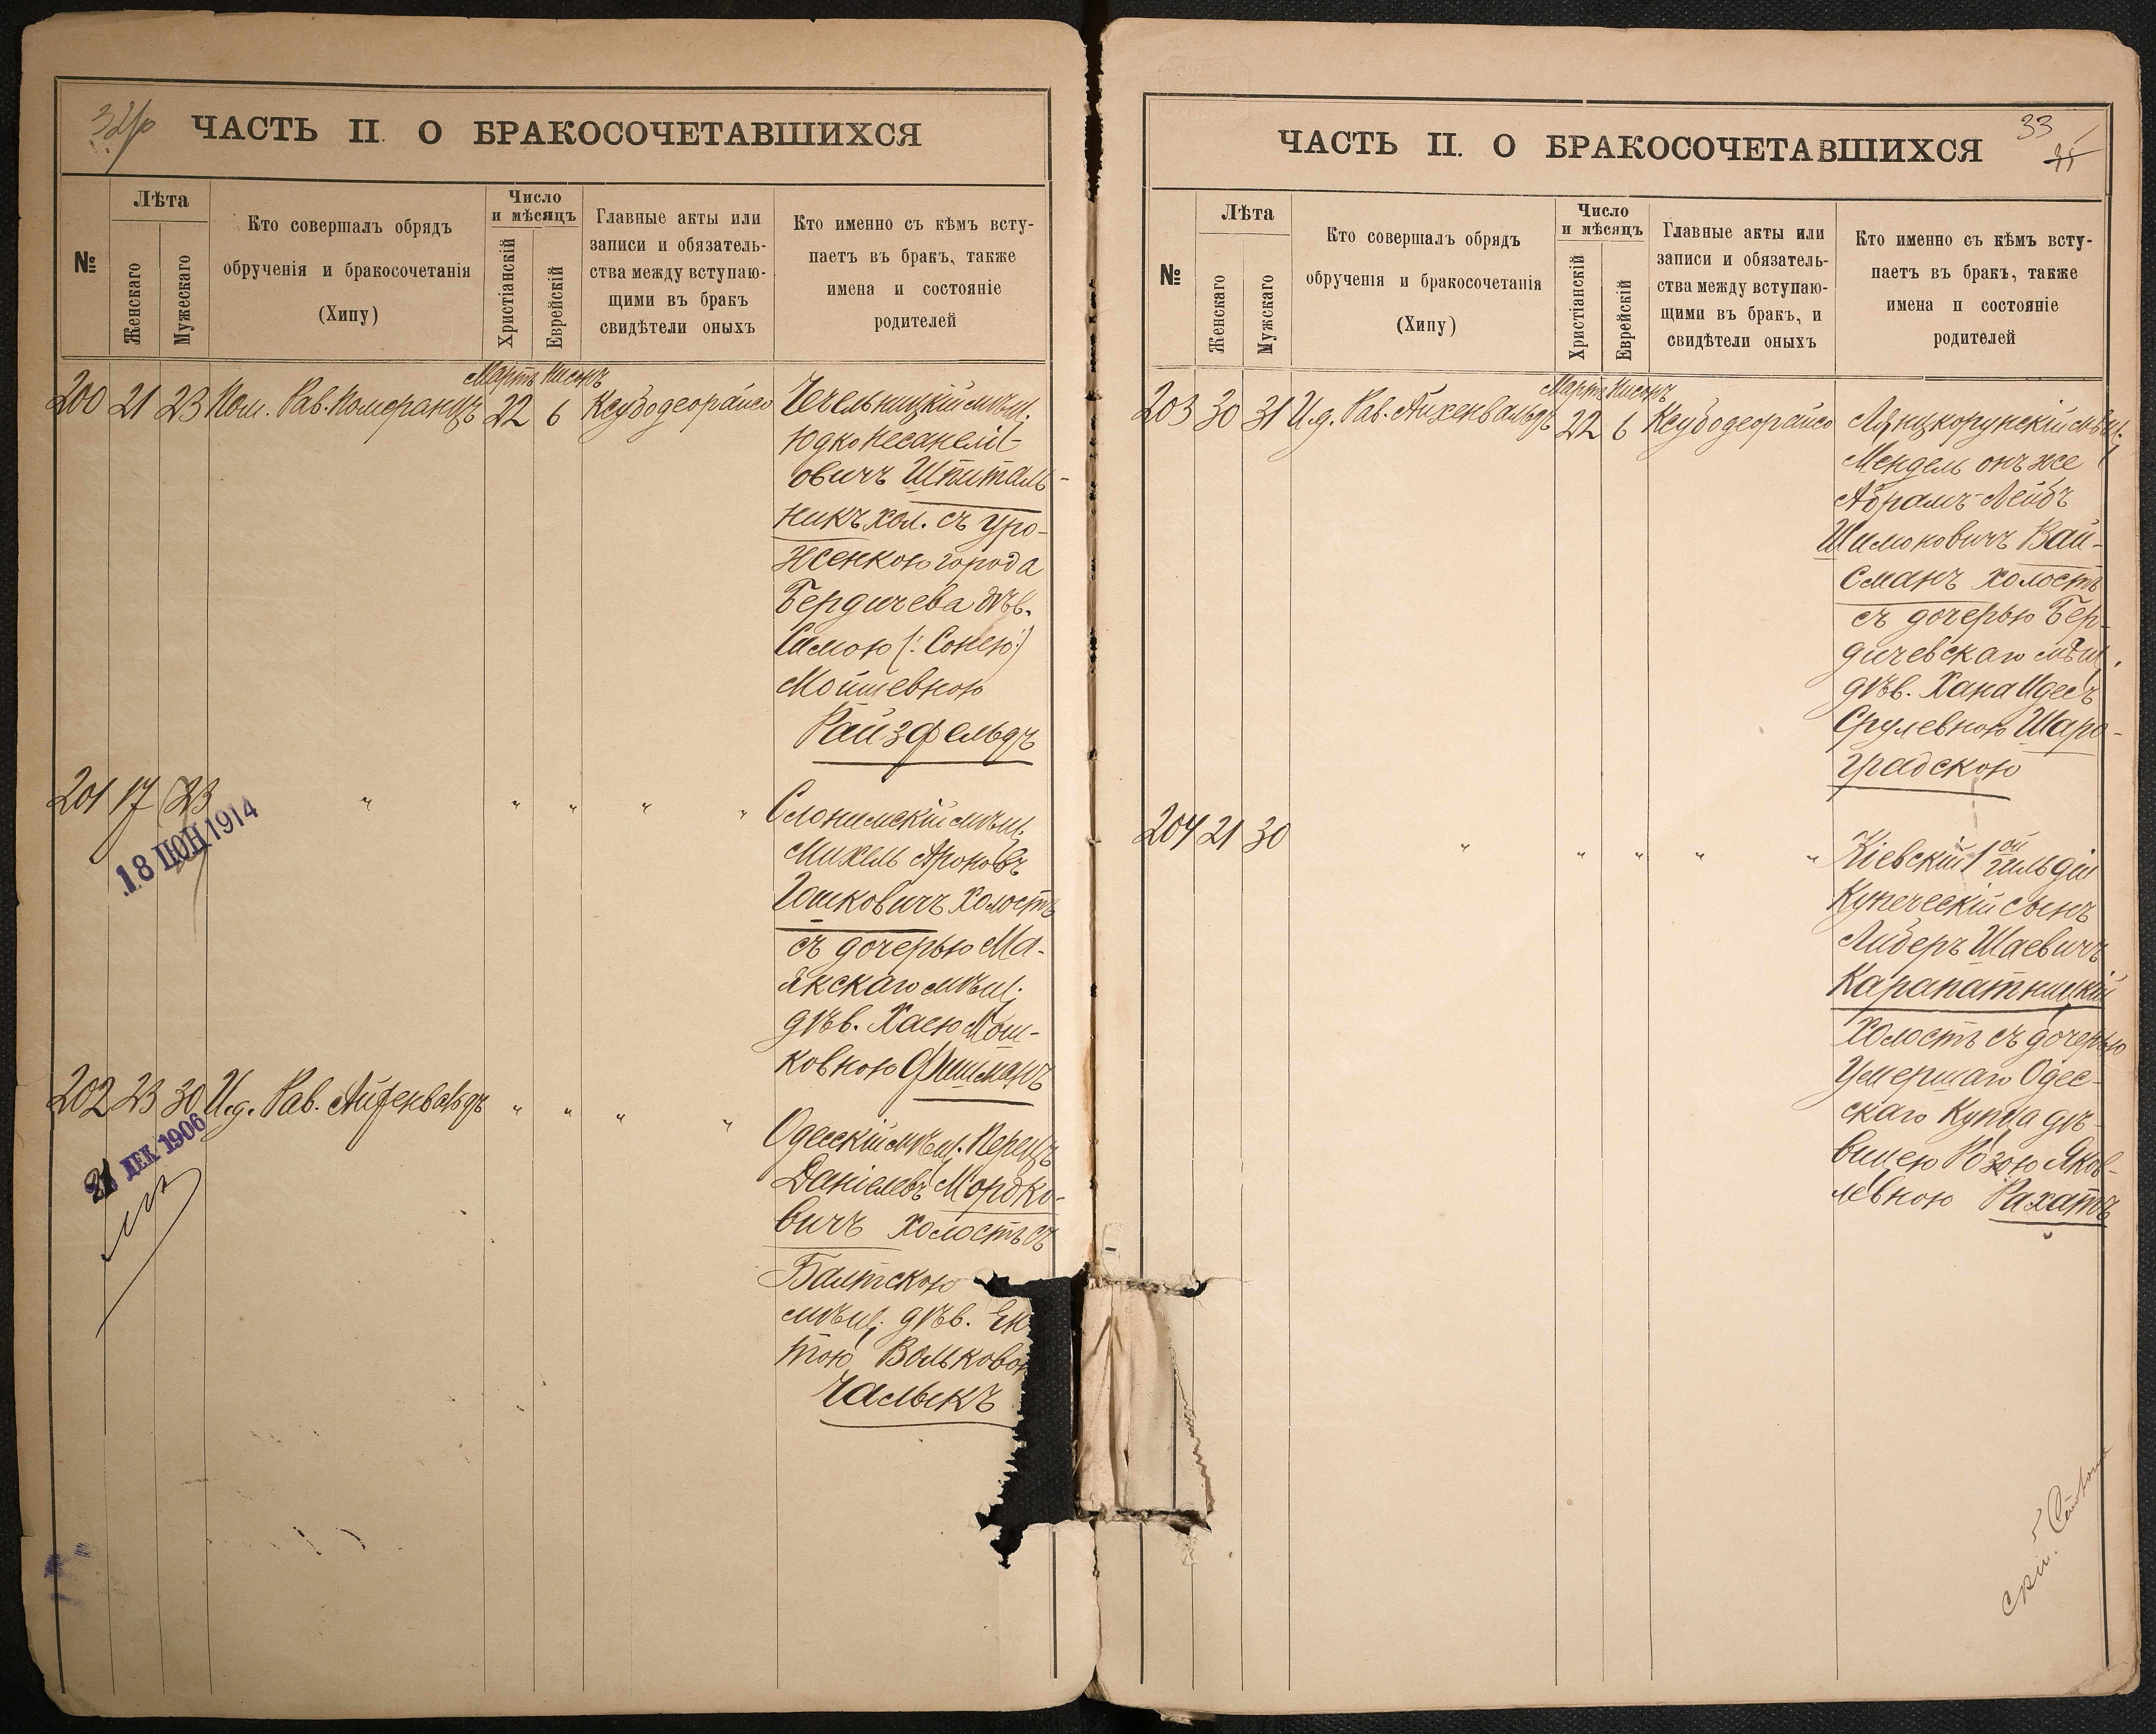 32
ЧАСТЬ II. О БРАКОСОЧЕТАВШИХСЯ
№
Лѣта
Женскаго
Мужескаго
Кто совершалъ обрядъ
обрученія и бракосочетанія
(Хипу)
Число
и мѣсяцъ
Христіанскій
Еврейскій
Главные акты или
записи и обязатель-
ства между вступаю-
щими въ бракъ
свидѣтели оныхъ
Кто именно съ кѣмъ всту-
паетъ въ бракъ, также
имена и состояніе
родителей
Мартъ Нисонъ
200 21 23 Пом. Рав. Померанцъ 22 6 Ксубодеорайсо
Чечельницкій мѣщ.
Юдко Несанелі-
овичъ Шпиталь-
никъ хол. съ уро-
женкою города
Бердичева дѣв.
Симою (: Сонею:)
Мойшевною
Райзфельдъ
201 17 23 " " " " "
18 ІЮН 1914
Слонимскій мѣщ.
Михель Ароновъ
Іошковичъ холостъ
съ дочерью Ма-
якскаго мѣщ.
дѣв. Хаею Мош-
ковною Фишманъ
202 23 30 И.д. Рав. Айхенвальдъ " " " "
21 ДЕК 1906
Одесскій мѣщ. Перецъ
Даніелевъ Мордко-
вичъ холостъ съ
Балтскою
мѣщ. дѣв. Ен
тою Вольково
Чалыкъ
33
ЧАСТЬ II. О БРАКОСОЧЕТАВШИХСЯ
№
Лѣта
Женскаго
Мужскаго
Кто совершалъ обрядъ
обрученія и бракосочетанія
(Хипу)
Число
и мѣсяцъ
Христіанскій
Еврейскій
Главные акты или
записи и обязатель-
ства между вступаю-
щими въ бракъ, и
свидѣтели оныхъ
Кто именно съ кѣмъ всту-
паетъ въ бракъ, также
имена и состояніе
родителей
Мартъ Нисонъ
203 30 31 И.д. Рав. Айхенвальдъ 22 6 Ксубодеорайсо
Лянцкорунскій мѣщ.
Мендель онъ же
Абрамъ-Лейбъ
Шимоновичъ Вай-
сманъ холостъ
съ дочерью Бер-
дичевскаго мѣщ.
дѣв. Хана Идесъ
Срулевною Шаро-
градскою
204 21 30 " " " " "
Кіевскій 1ой гильдіи
Купеческій сынъ
Лидеръ Шаевичъ
Карапатницкій
Холостъ съ дочерью
Умершаго Одес-
скаго Купца дѣ-
вицею Розою Яков-
левною Рахатъ